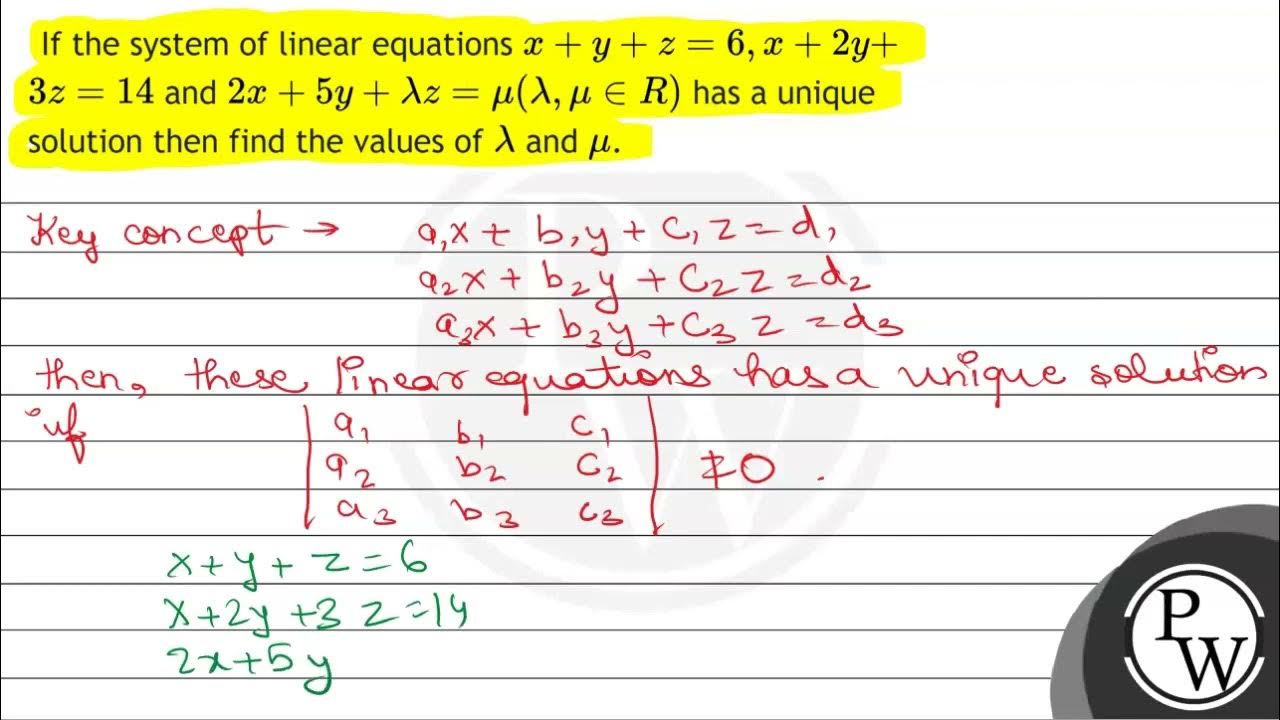 If the system of linear equations x + y + z = 6, x + 2y+
3z = 14 and 2x + 5y + λz = μ(λ, μ ∈ R) has a unique
solution then find the values of λ and μ.
Key concept → a₁x + b₁y + c₁z = d₁
a₂x + b₂y + c₂z = d₂
a₃x + b₃y + c₃z = d₃
then, these linear equations has a unique solution
if | a₁ b₁ c₁ |
| a₂ b₂ c₂ | ≠ 0.
| a₃ b₃ c₃ |
x + y + z = 6
x + 2y + 3z = 14
2x + 5y
PW